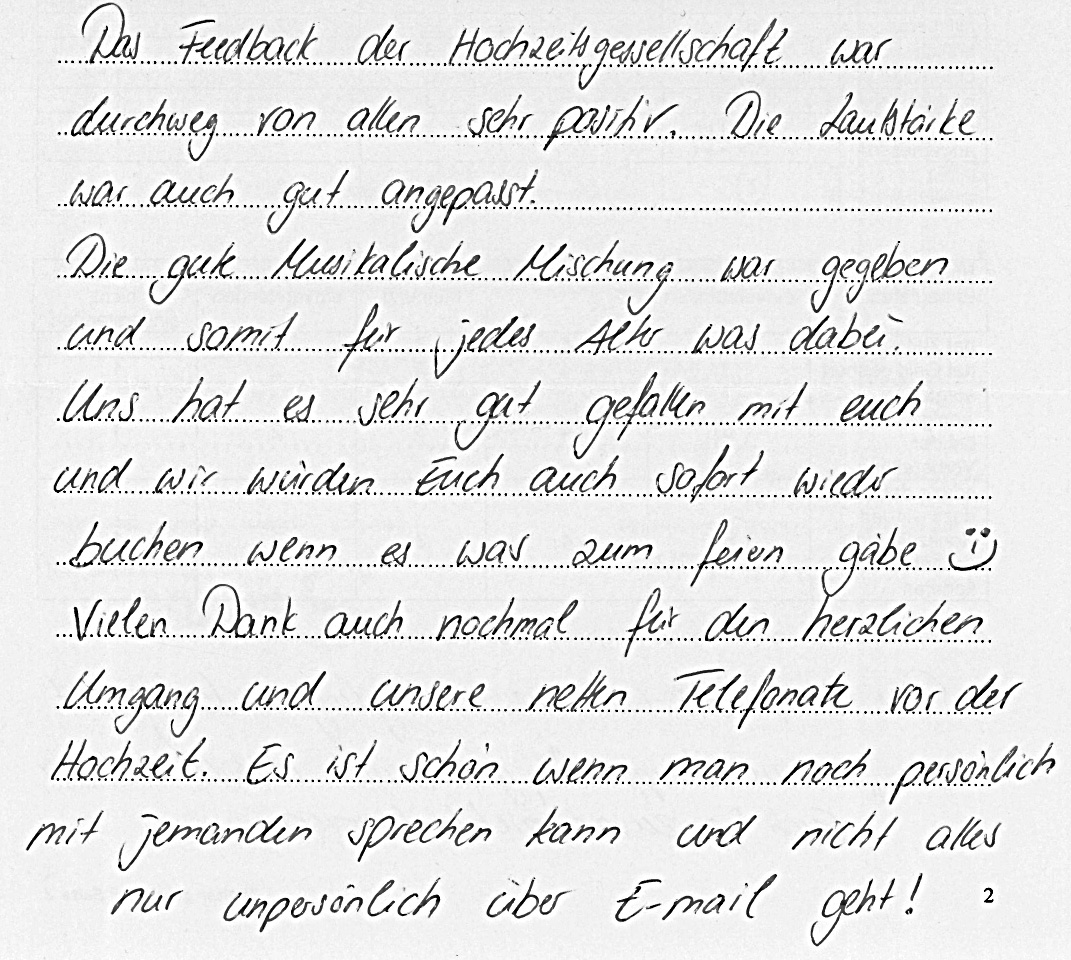 Das Feedback der Hochzeitsgesellschaft war
durchweg von allen sehr positiv. Die Lautstärke
war auch gut angepasst.
Die gute Musikalische Mischung war gegeben
und somit für jedes Alter was dabei.
Uns hat es sehr gut gefallen mit euch
und wir würden Euch auch sofort wieder
buchen wenn es was zum feiern gäbe
Vielen Dank auch nochmal für den herzlichen
Umgang und unsere netten Telefonate vor der
Hochzeit. Es ist schön wenn man noch persönlich
mit jemanden sprechen kann und nicht alles
nur unpersönlich über E-mail geht! 2